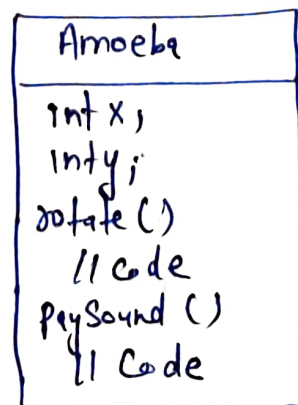 Amoeba
int x;
int y;
rotate ()
// Code
PaySound ()
// Code